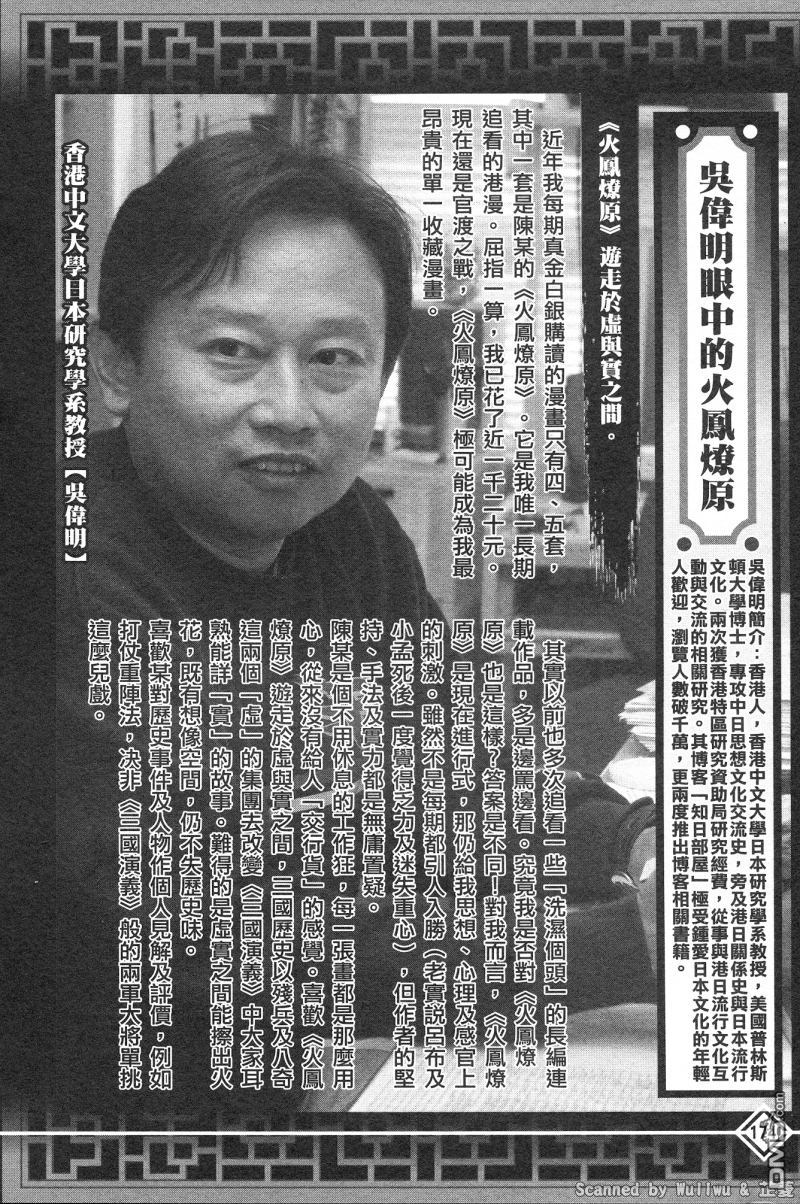 吳偉明眼中的火鳳燎原
吳偉明簡介：香港人，香港中文大學日本研究學系教授，美國普林斯
頓大學博士，專攻中日思想文化交流史，旁及港日關係史與日本流行
文化。兩次獲香港特區研究資助局研究經費，從事與港日流行文化互
動與交流的相關研究。其博客「知日部屋」極受鍾愛日本文化的年輕
人歡迎，瀏覽人數破千萬，更兩度推出博客相關書籍。
《火鳳燎原》遊走於虛與實之間。
近年我每期真金白銀購讀的漫畫只有四、五套，
其中一套是陳某的《火鳳燎原》。它是我唯一長期
追看的港漫。屈指一算，我已花了近一千二十元。
現在還是官渡之戰，《火鳳燎原》極可能成為我最
昂貴的單一收藏漫畫。
其實以前也多次追看一些「洗濕個頭」的長編連
載作品，多是邊罵邊看。究竟我是否對《火鳳燎
原》也是這樣？答案是不同！對我而言，《火鳳燎
原》是現在進行式，那仍給我思想、心理及感官上
的刺激。雖然不是每期都引人入勝（老實說呂布及
小孟死後一度覺得乏力及迷失重心），但作者的堅
持、手法及實力都是無庸置疑。
陳某是個不用休息的工作狂，每一張畫都是那麼用
心，從來沒有給人「交行貨」的感覺。喜歡《火鳳
燎原》遊走於虛與實之間，三國歷史以殘兵及八奇
這兩個「虛」的集團去改變《三國演義》中大家耳
熟能詳「實」的故事。難得的是虛實之間能擦出火
花，既有想像空間，仍不失歷史味。
喜歡某對歷史事件及人物作個人見解及評價，例如
打仗重陳法，決非《三國演義》般的兩軍大將單挑
這麼兒戲。
香港中文大學日本研究學系教授【吳偉明】
Scanned by Wuliwu & 芷蓼